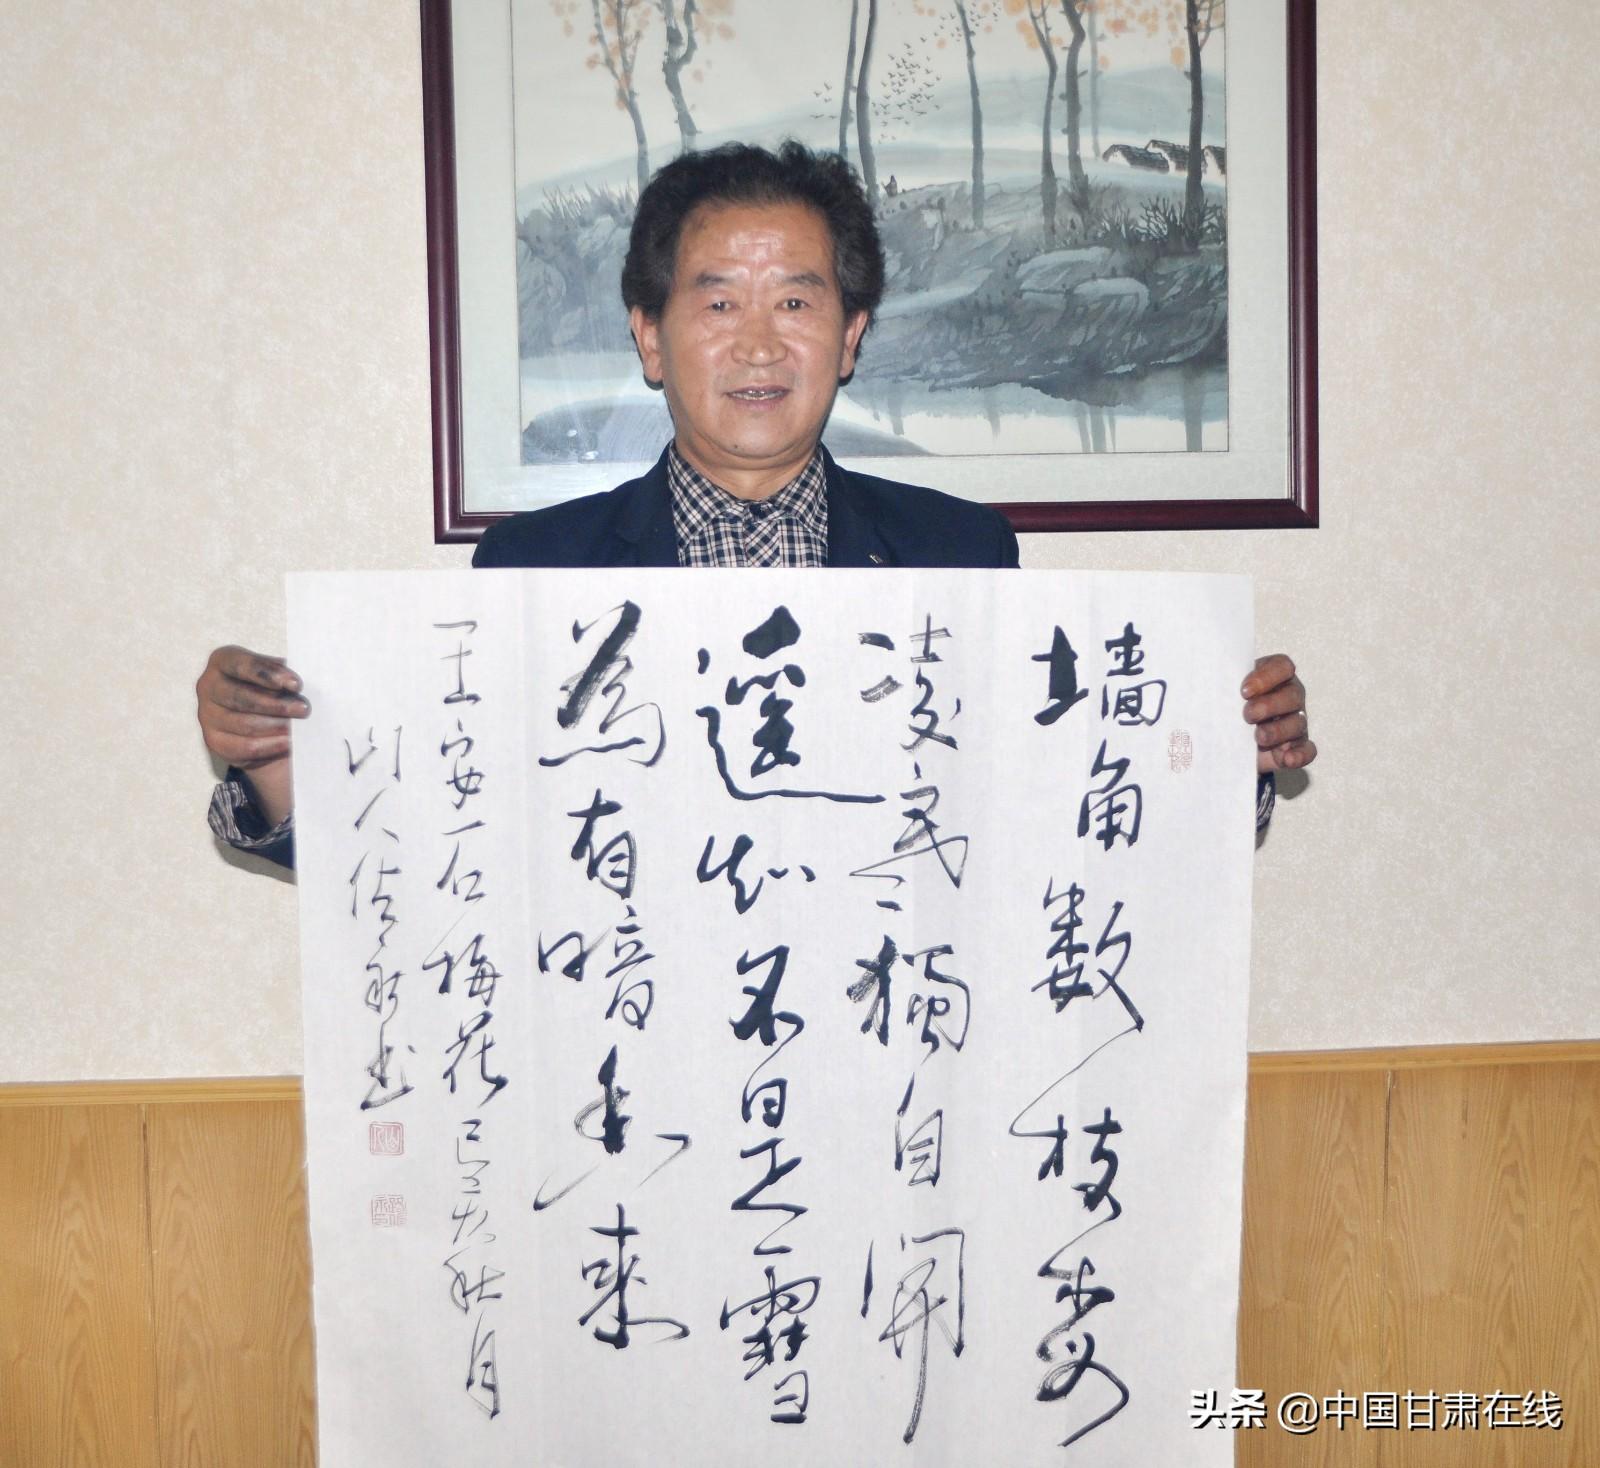 墙角数枝梅
凌寒獨自開
遥知不是雪
為有暗香来
王安石梅花己亥秋月
山人 书
头条 @中国甘肃在线